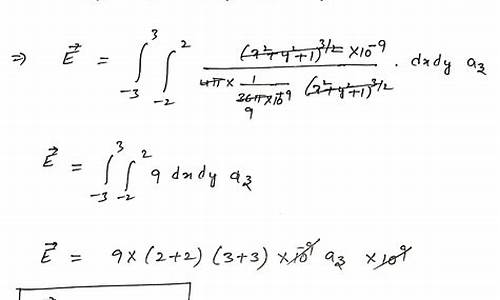 ⇒ E⃗ = ∫_{-3}^{3} ∫_{-2}^{2} (x²+y²+1)^{3/2} × 10^{-9} / 4π × 1/(36π × 10^{-9}) 9 (x²+y²+1)^{3/2} . dx dy a_z
E⃗ = ∫_{-3}^{3} ∫_{-2}^{2} 9 dx dy a_z
E⃗ = 9 × (2+2) (3+3) × 10^{-9} a_z × 10^{9}